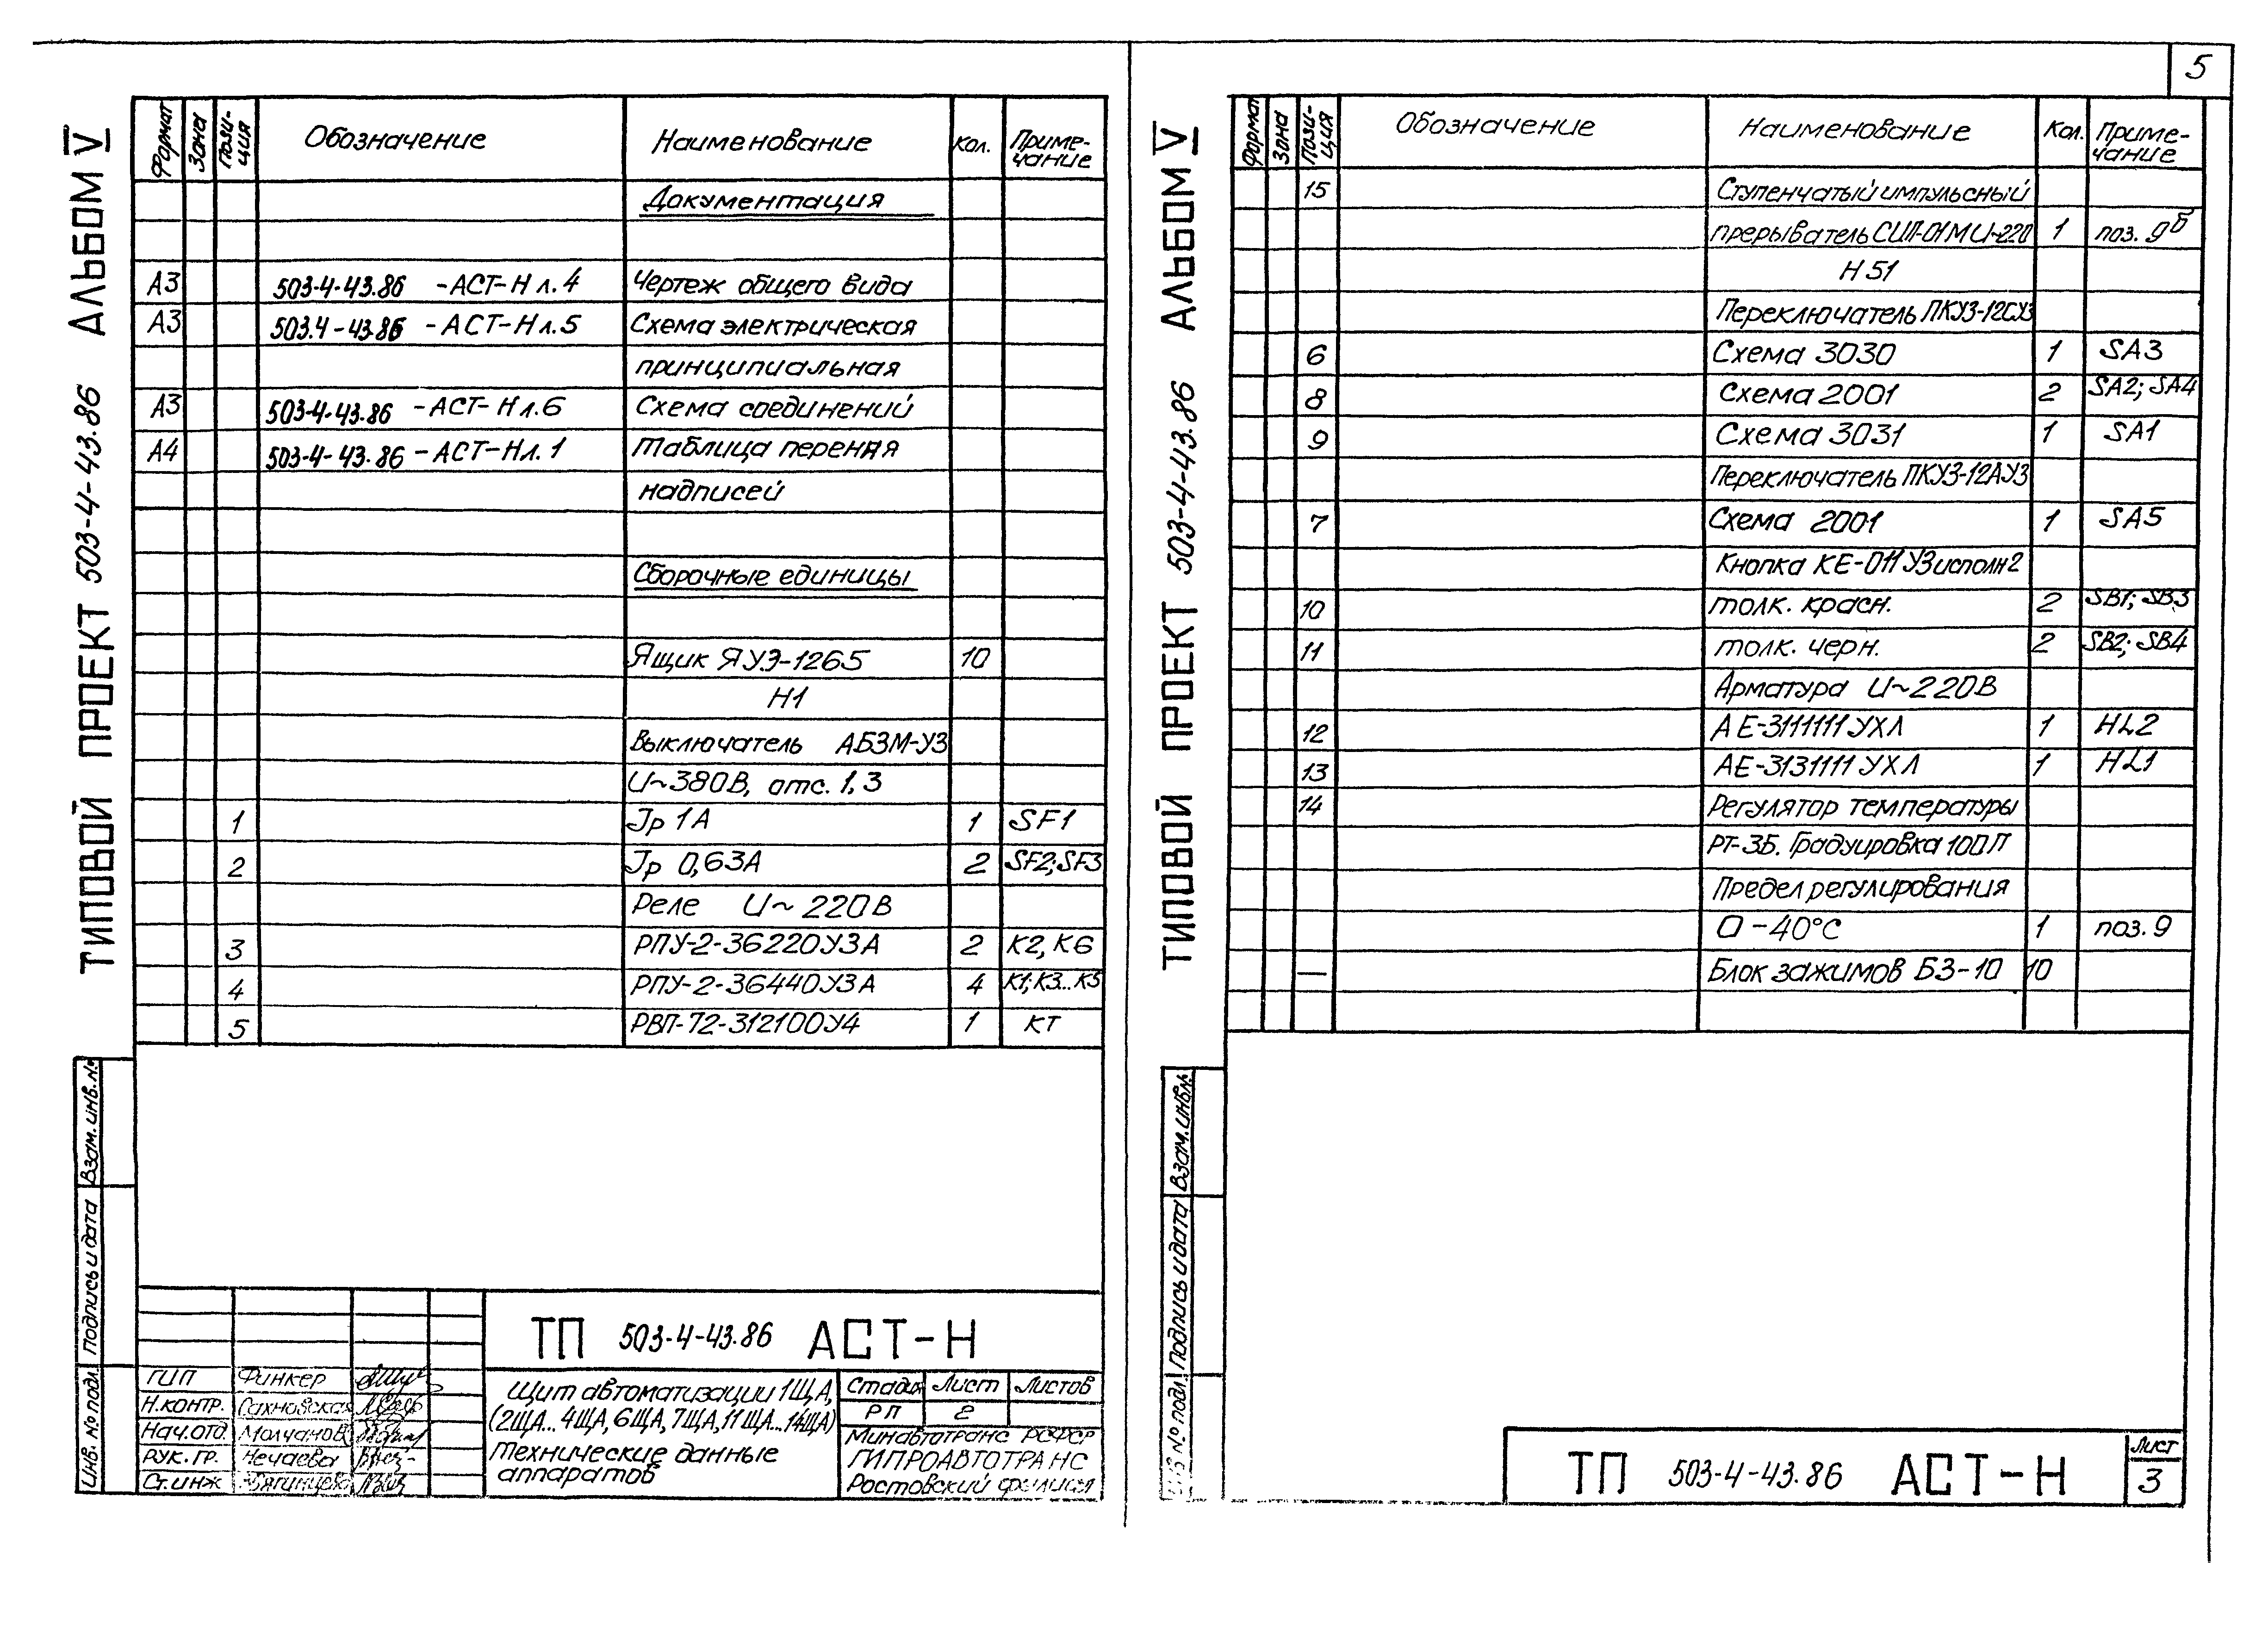 5
АЛЬБОМ V
ТИПОВОЙ ПРОЕКТ 503-4-43.86
Формат Зона Пози-ция Обозначение Наименование Кол. Приме-чание
Документация
А3 503-4-43.86 -АСТ-Н л.4 Чертеж общего вида
А3 503.4-43.86 -АСТ-Н л.5 Схема электрическая
принципиальная
А3 503-4-43.86 -АСТ-Н л.6 Схема соединений
А4 503-4-43.86 -АСТ-Н л.1 Таблица переняя
надписей
Сборочные единицы
Ящик ЯУЭ-1265 10
Н1
Выключатель АБЗМ-УЗ
U~380В, отс. 1,3
1 Jр 1А 1 SF1
2 Jр 0,63А 2 SF2;SF3
Реле U~ 220В
3 РПУ-2-36220УЗА 2 К2, К6
4 РПУ-2-36440УЗА 4 К1;К3...К5
5 РВП-72-312100У4 1 КТ
Взам. инв. №
Подпись и дата
Инв. № подл.
ТП 503-4-43.86 АСТ-Н
ГИП Финкер
Н.контр. Сахновская
Нач.отд. Молчанов
Рук. гр. Нечаева
Ст.инж
Щит автоматизации 1ЩА,
(2ЩА...4ЩА,6ЩА,7ЩА,11ЩА...14ЩА)
Технические данные
аппаратов
Стадия Лист Листов
РП 2
Минавтотранс РСФСР
ГИПРОАВТОТРАНС
Ростовский филиал
АЛЬБОМ V
ТИПОВОЙ ПРОЕКТ 503-4-43.86
Формат Зона Пози-ция Обозначение Наименование Кол. Приме-чание
15 Ступенчатый импульсный
прерыватель СИП-01М U~220 1 поз. 9б
Н51
Переключатель ПКУЗ-12СУЗ
6 Схема 3030 1 SA3
8 Схема 2001 2 SA2; SA4
9 Схема 3031 1 SA1
Переключатель ПКУЗ-12АУЗ
7 Схема 2001 1 SA5
Кнопка КЕ-011 УЗ исполн 2
10 толк. красн. 2 SB1; SB3
11 толк. черн. 2 SB2; SB4
Арматура U~220В
12 АЕ-3111111 УХЛ 1 HL2
13 АЕ-3131111 УХЛ 1 HL1
14 Регулятор температуры
РТ-3Б. Градуировка 100П
Предел регулирования
0 -40°С 1 поз. 9
— Блок зажимов БЗ-10 10
Взам. инв.№
Подпись и дата
№ подл.
ТП 503-4-43.86 АСТ-Н
Лист
3